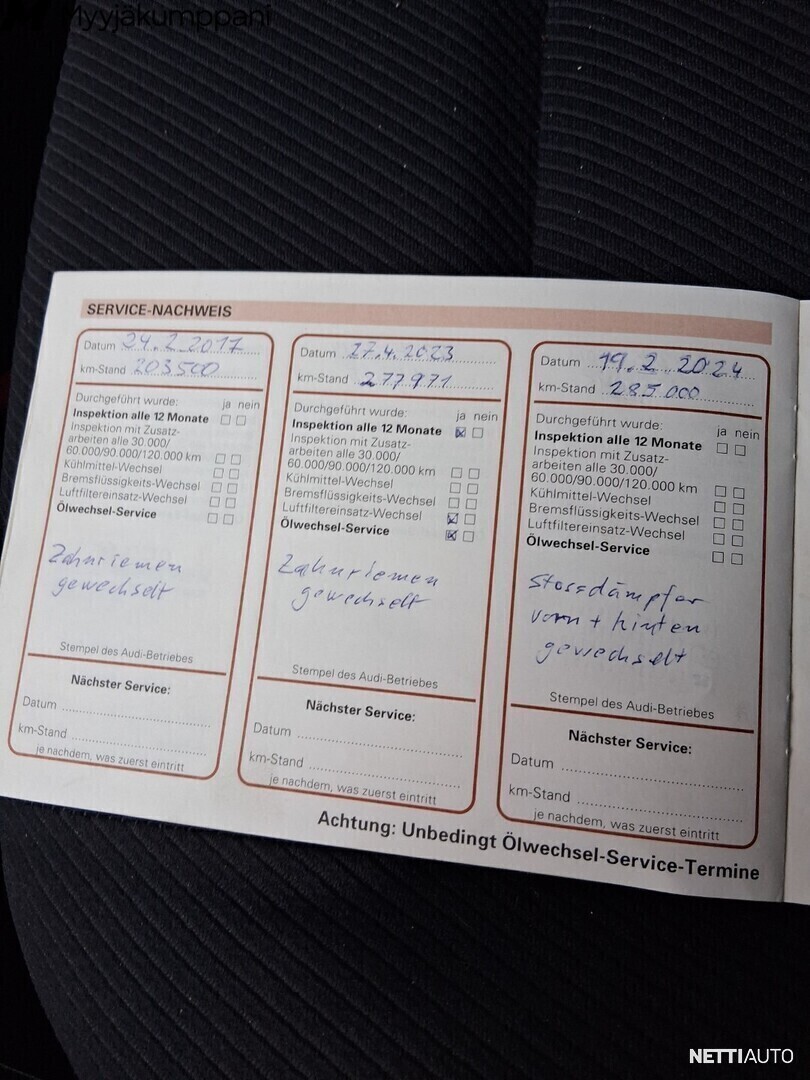 Myyjäkumppani
SERVICE-NACHWEIS
Datum 24.2.2017
km-Stand 203500
Durchgeführt wurde: ja nein
Inspektion alle 12 Monate
Inspektion mit Zusatz-
arbeiten alle 30.000/
60.000/90.000/120.000 km
Kühlmittel-Wechsel
Bremsflüssigkeits-Wechsel
Luftfiltereinsatz-Wechsel
Ölwechsel-Service
Zahnriemen
gewechselt
Stempel des Audi-Betriebes
Nächster Service:
Datum
km-Stand
je nachdem, was zuerst eintritt
Datum 27.4.2023
km-Stand 277971
Durchgeführt wurde: ja nein
Inspektion alle 12 Monate
Inspektion mit Zusatz-
arbeiten alle 30.000/
60.000/90.000/120.000 km
Kühlmittel-Wechsel
Bremsflüssigkeits-Wechsel
Luftfiltereinsatz-Wechsel
Ölwechsel-Service
Zahnriemen
gewechselt
Stempel des Audi-Betriebes
Nächster Service:
Datum
km-Stand
je nachdem, was zuerst eintritt
Datum 19.2 2024
km-Stand 285.000
Durchgeführt wurde: ja nein
Inspektion alle 12 Monate
Inspektion mit Zusatz-
arbeiten alle 30.000/
60.000/90.000/120.000 km
Kühlmittel-Wechsel
Bremsflüssigkeits-Wechsel
Luftfiltereinsatz-Wechsel
Ölwechsel-Service
Stossdämpfer
vorn + hinten
gewechselt
Stempel des Audi-Betriebes
Nächster Service:
Datum
km-Stand
je nachdem, was zuerst eintritt
Achtung: Unbedingt Ölwechsel-Service-Termine
NETTIAUTO